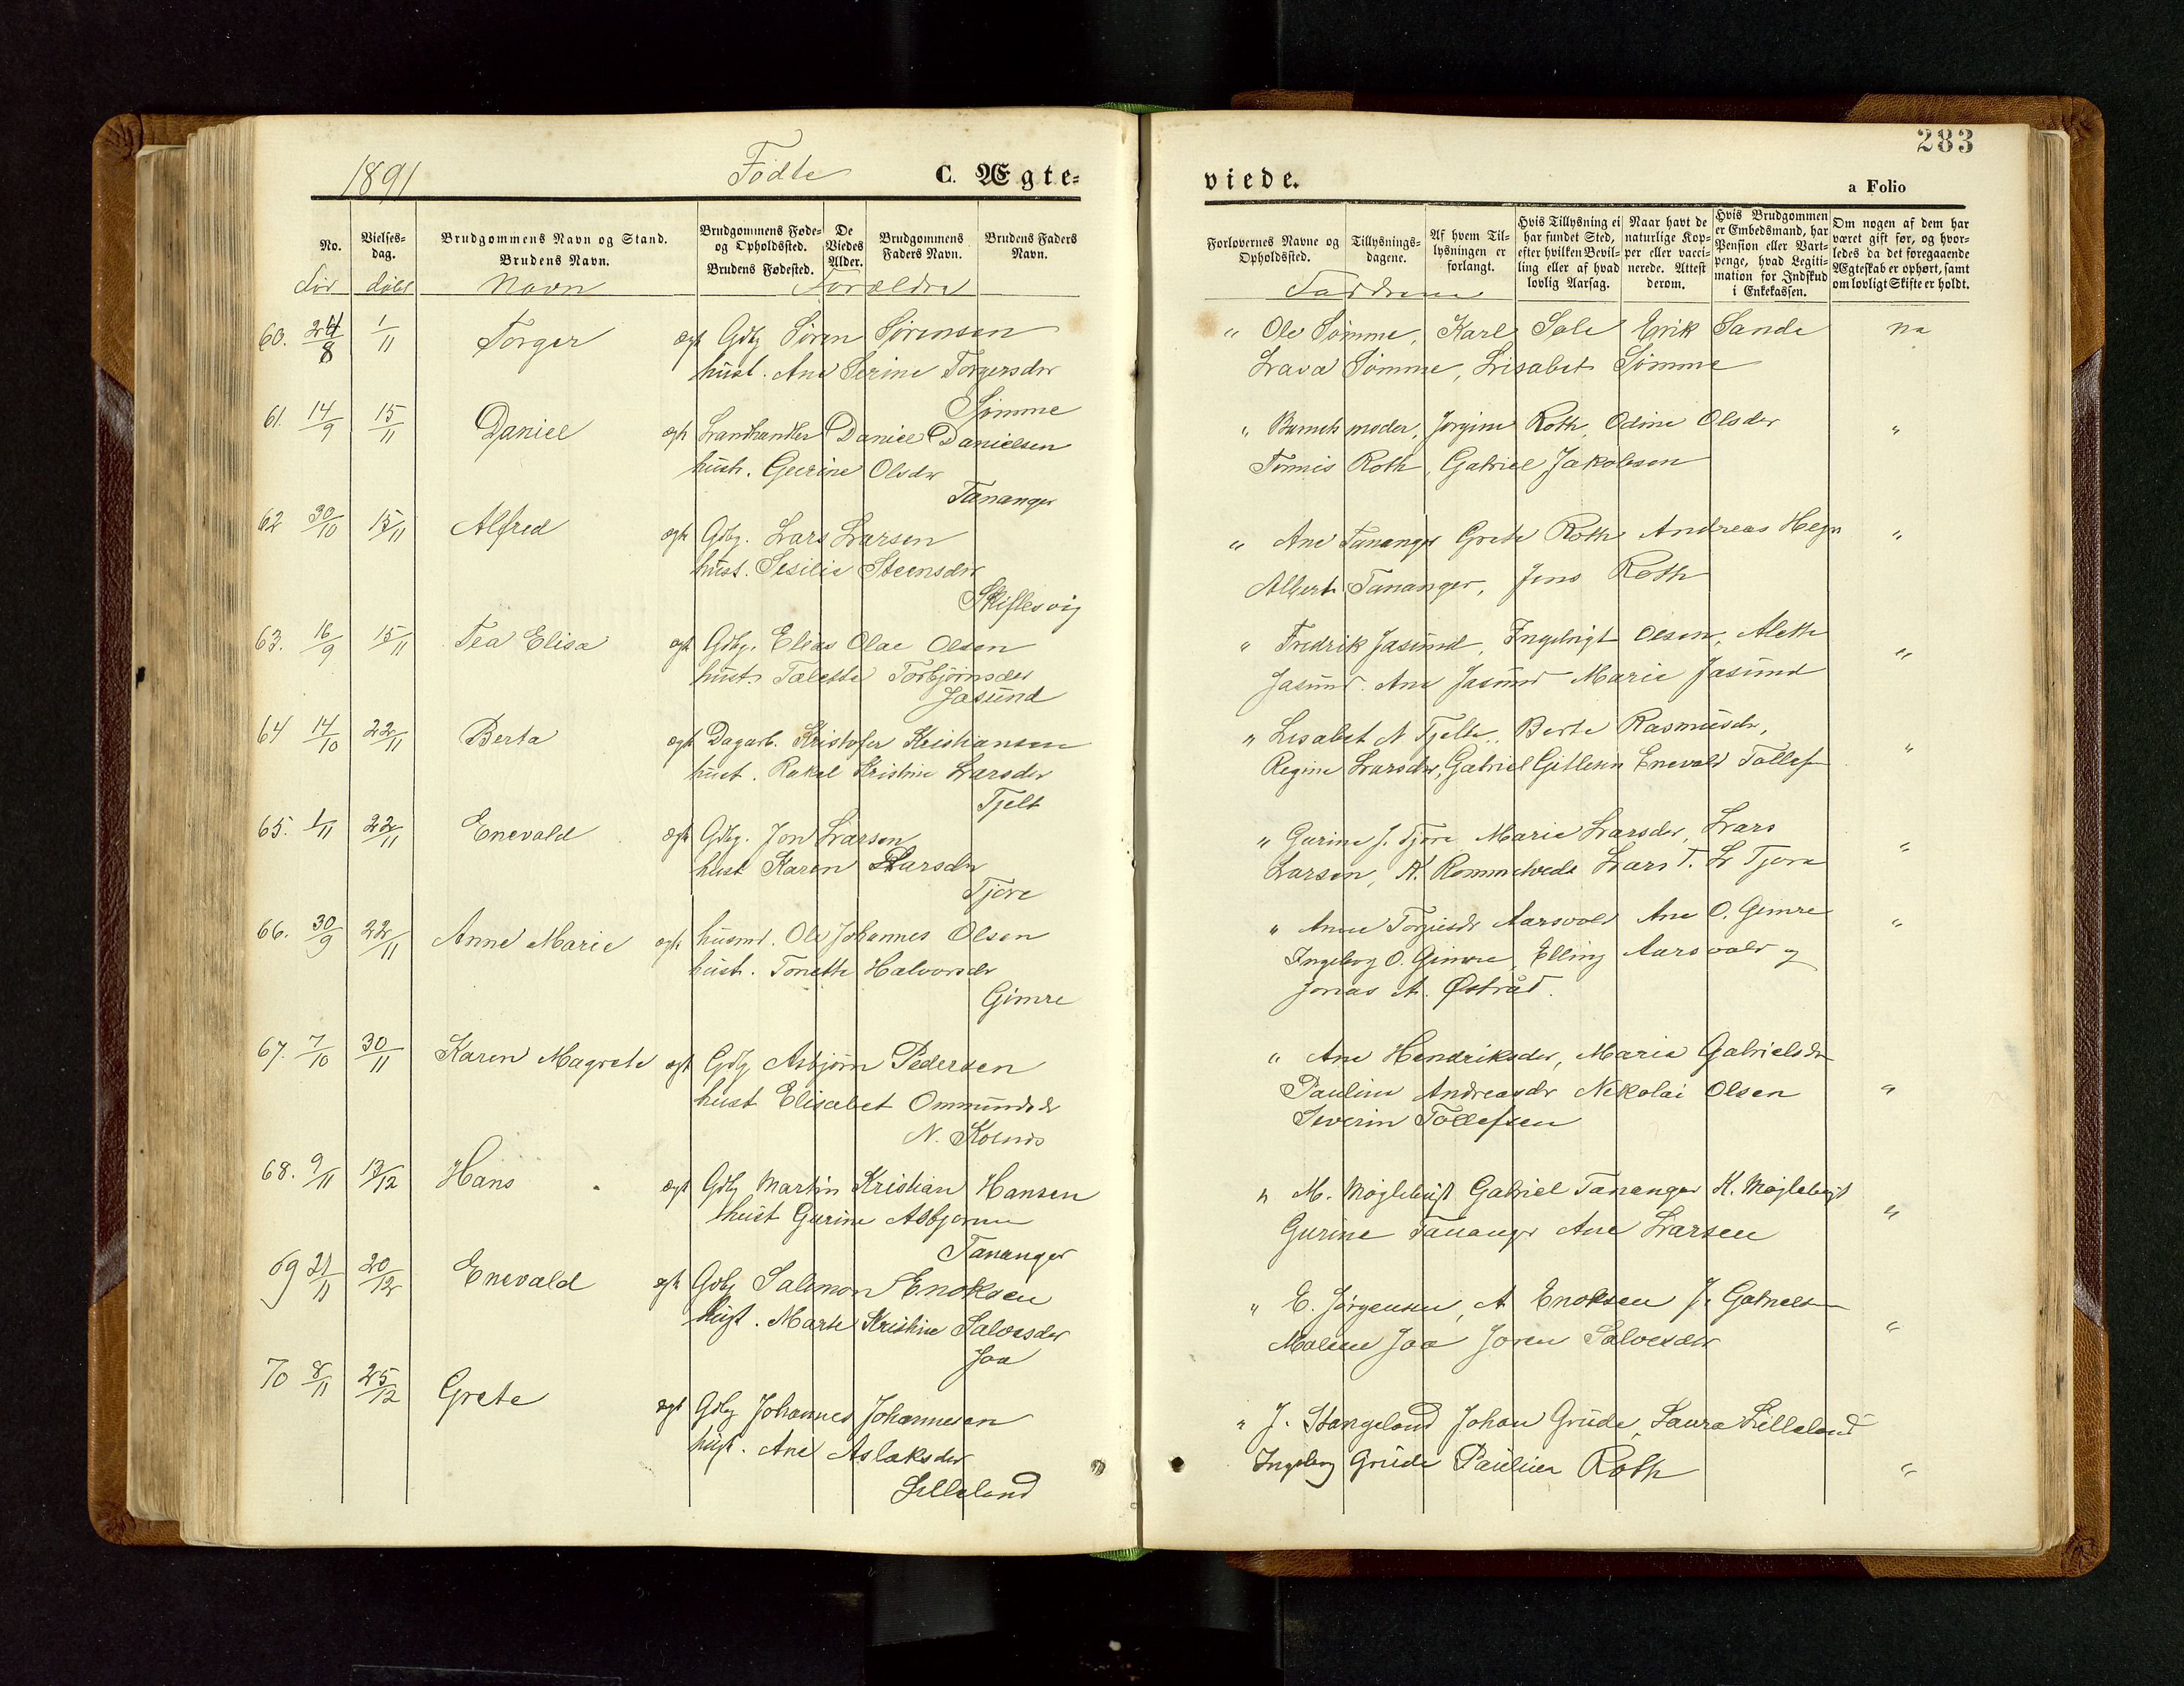 1891 Fødte C. Ægte-
No. Vielses-dag. Brudgommens Navn og Stand. Brudens Navn. Brudgommens Føde- og Opholdssted. Brudens Fødested. De Viedes Alder. Brudgommens Faders Navn. Brudens Faders Navn.
Navn Forældre
60. 24/8 1/11 Torger ægt Gdbg Søren Sørensen
hust. Ane Serine Torgersdr
Sømme
61. 14/9 15/11 Daniel ægt Landhandler Daniel Danielsen
hust. Gurine Olsdr
Tananger
62 30/10 15/11 Alfred ægt Gdbg. Lars Larsen
hust. Sesilie Steensdr
Skiflesvig
63. 16/9 15/11 Tea Elisa ægt Gdbg. Elias Olae Olsen
hust. Talette Torbjørnsdr
Jasund
64 14/10 22/11 Berta ægt Dagarb. Kristofer Kristiansen
hust. Rakel Kristine Larsdr
Tjelt
65. 1/11 22/11 Enevald ægt Gdbg. Jon Larsen
hust Karen Larsdr
Tjore
66. 30/9 22/11 Anne Marie ægt husmd. Ole Johannes Olsen
hust. Tonette Halvorsdr
Gimre
67. 7/10 30/11 Karen Magrete ægt Gdbg Asbjørn Pedersen
hust Elisabet Ommundsdr
N. Kolnes
68. 9/11 13/12 Hans ægt Gdbg Martin Kristian Hansen
hust Gurine Asbjørnsen
Tananger
69 21/11 20/12 Enevald ægt Gdbg Salomon Enoksen
hust. Marte Kristine Salvesdr
Joa
70 8/11 25/12 Grete ægt Gdbg Johannes Johannesen
hust. Ane Aslaksdr
Lilleland
283
viede. a Folio
Forlovernes Navne og Opholdssted. Tillysnings-dagene. Af hvem Tillysningen er forlangt. Hvis Tillysning ei har fundet Sted, efter hvilken Bevilling eller af hvad lovlig Aarsag. Naar havt de naturlige Kopper eller vaccinerede. Attest derom. Hvis Brudgommen er Embedsmand, har Pension eller Vartpenge, hvad Legitimation for Indskud i Enkekassen. Om nogen af dem har været gift før, og hvorledes da det foregaaende Ægteskab er ophørt, samt om lovligt Skifte er holdt.
Faddrene
" Ole Sømme, Karl Sole Erik Sande na
Lava Sømme, Lisabet Sømme
" Barnets moder, Jørgine Roth, Odine Olsdr "
Tønnis Roth, Gabriel Jakobsen
" Ane Tananger Grete Roth Andreas Hegn "
Albert Tananger, Jens Roth
" Fredrik Jasund, Ingebrigt Olsen, Alette "
Jasund. Ane Jasund Marie Jasund
" Lisabet N Tjelte, Berte Rasmusdr, "
Regine Larsdr, Gabriel Gitlesen Enevald Tollefs
" Gurine J. Tjore Marie Larsdr, Lars "
Larsen, K. Rommetvedt Lars T. L Tjore
" Anne Torgersdr Aarsvold Ane O. Gimre "
Ingeborg O. Gimre, Elling Aarsvold og
Jonas A. Østråt.
" Ane Hendriksdr, Marie Gabrielsdr
Pauline Andreasdr Nikolai Olsen "
Severin Tollefsen
" M. Møglebust Gabriel Tananger K. Møglebust "
Gurine Tananger Ane Larsen
" E. Jørgensen, A Enoksen J. Gabrielsen
Malene Joa Joren Salvesdr "
" J. Stangeland Johan Grude, Laura Lilleland
Ingeborg Grude Pauline Roth "